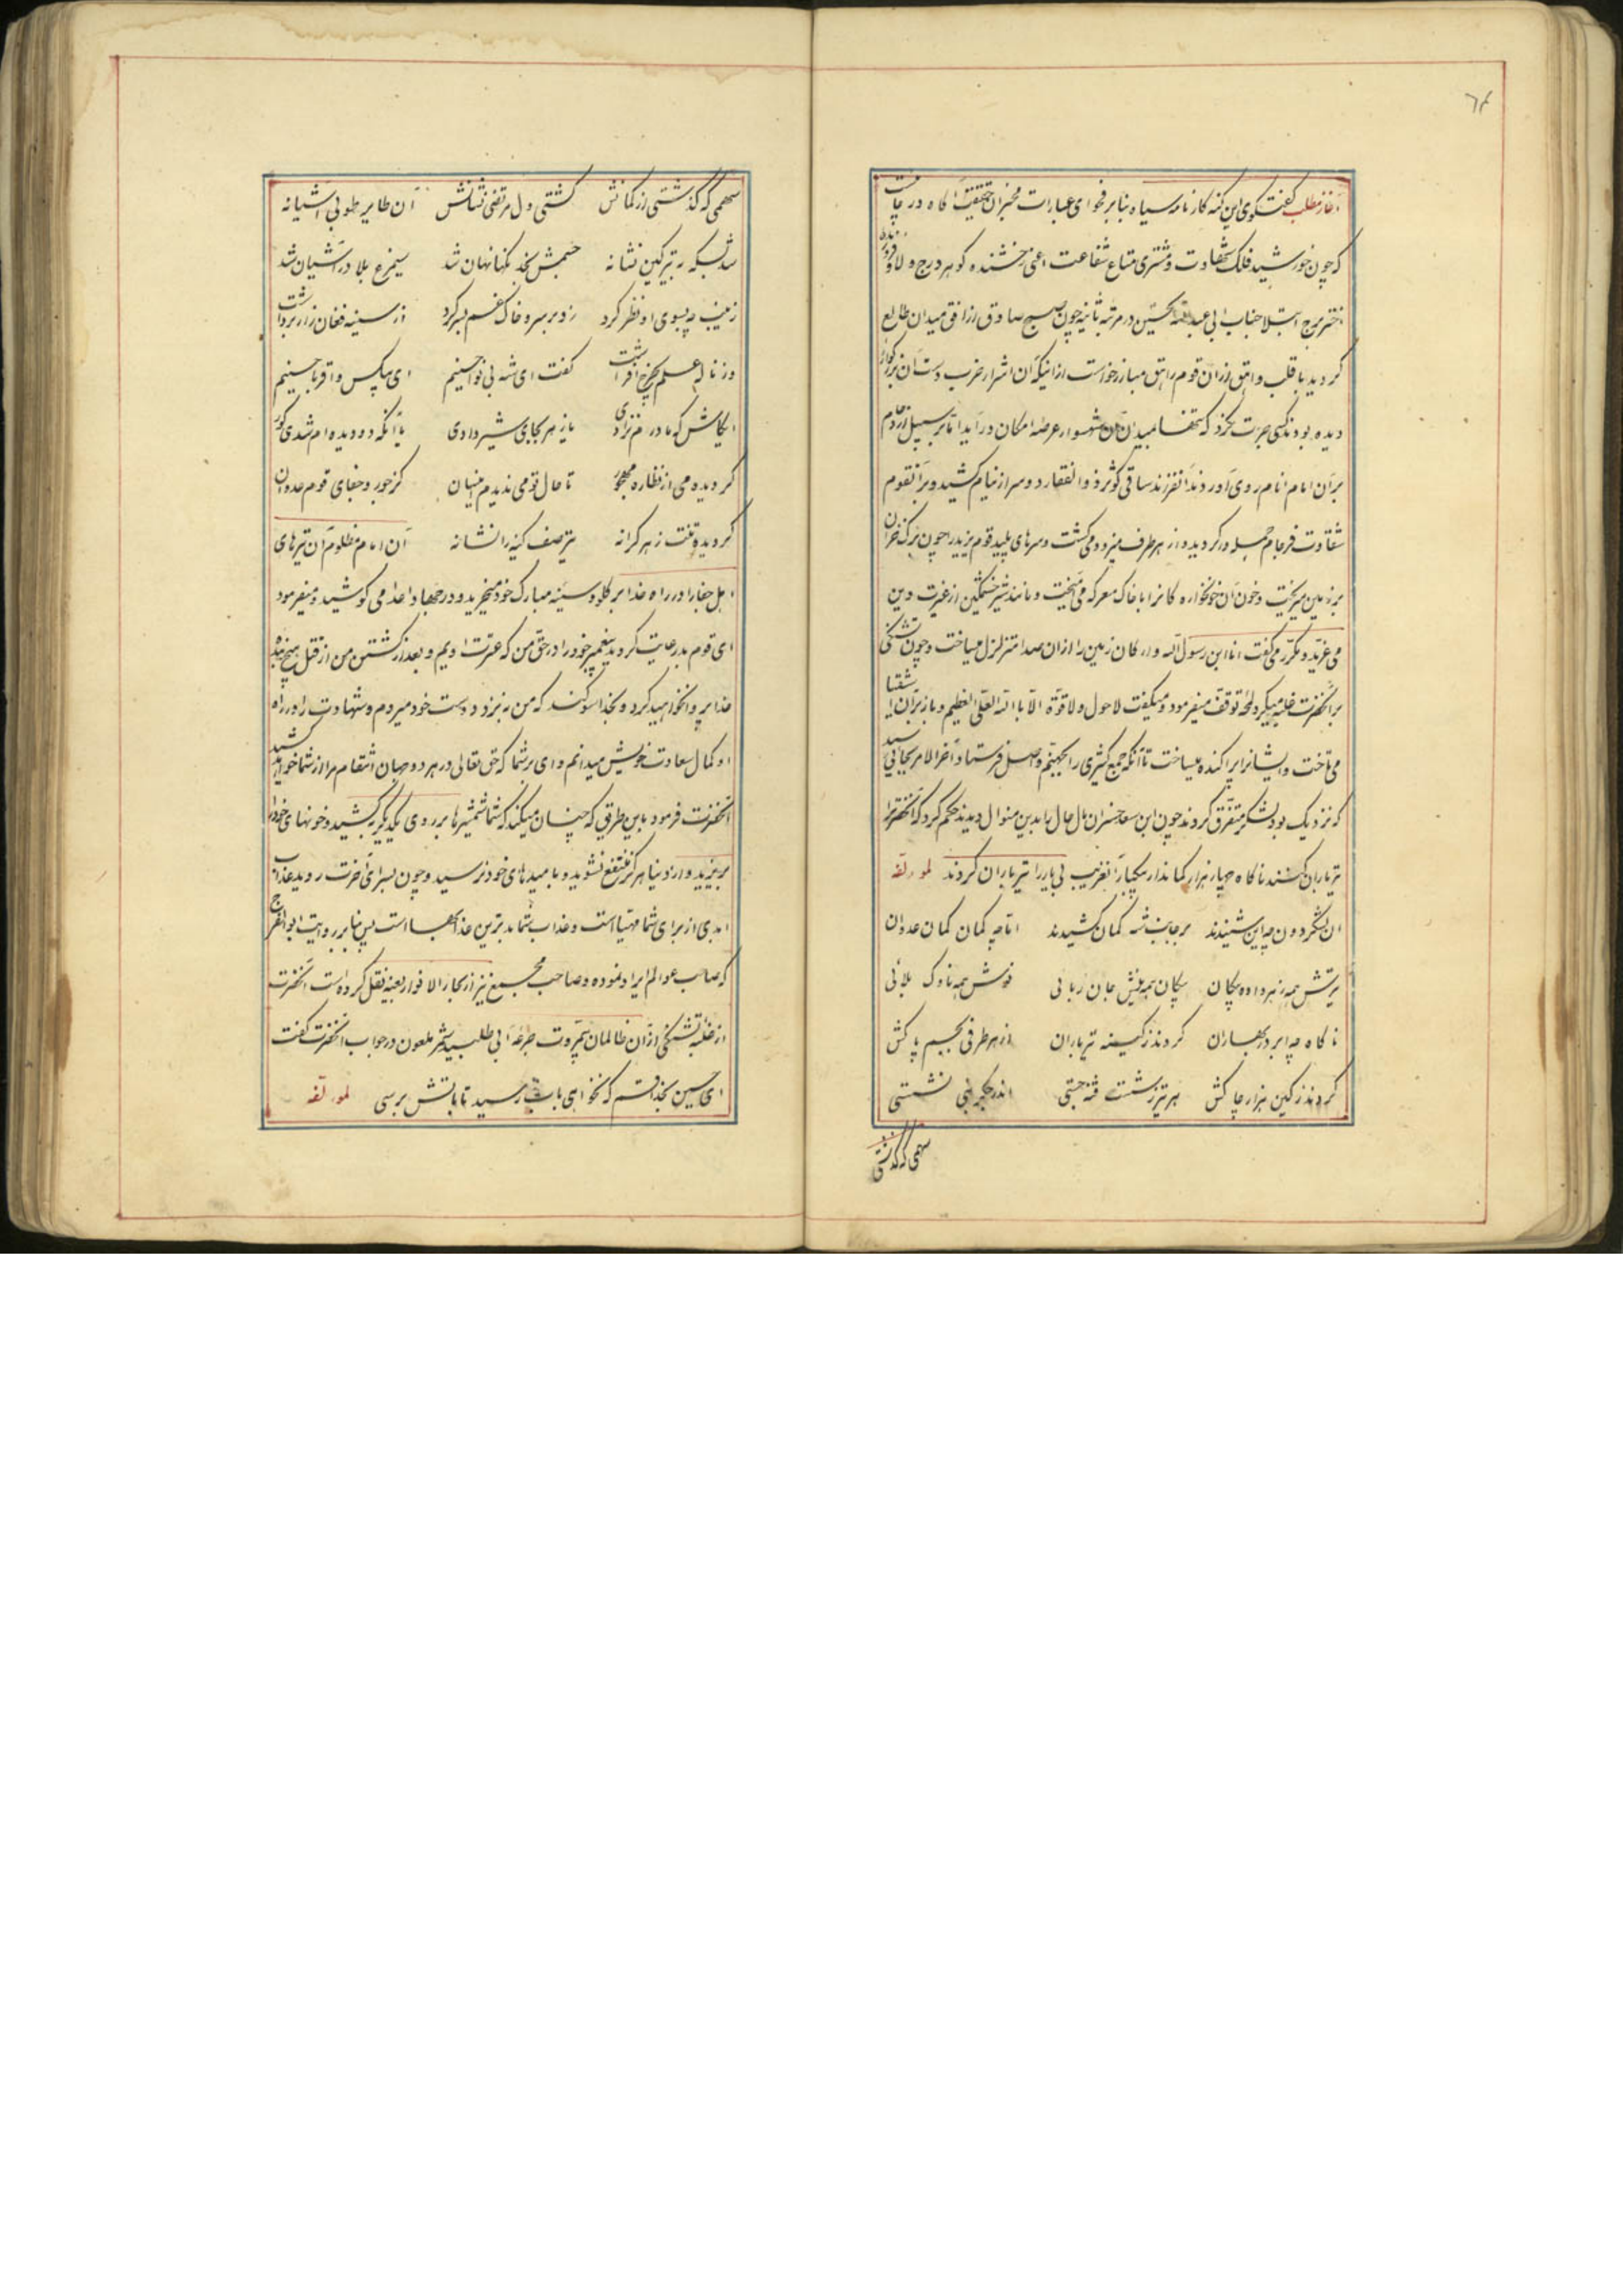 ٦٤
آغاز مطلب گفتگوی این گنه کار نامه سیاه بنابر فحوای عبارات مخبران حقیقت آگاه در
که چون خورشید فلک شقاوت و مشتری متاع شفاعت اعنی رخشنده گوهر درج ولا و فروزنده
اختر برج ابتلا جناب ابی عبدالله الحسین در مرتبه ثانیه چون صبح صادق از افق میدان طالع
گردید با قلب واثق از آن قوم مبارز خواست از آنیکه آن اشرار ضرب دست آن بزرگوار
دیده بودند کسی جرئت نکرد که تنها بمیدان آن شهسوار عرصه امکان درآید اما بر سبیل ازدحام
بر آن امام انام روی آوردند آنفرزند ساقی کوثر ذوالفقار دو سر از نیام کشید و بر آنقوم
شقاوت فرجام حمله ور گردید و از هر طرف میزد و می کشت و سرهای پلید قوم یزید را چون برک خزان
بر زمین میریخت و خون آن خونخواره کانرا با خاک معرکه می آمیخت و مانند شیر خشمگین از غیرت دین
می غرید و مکرر می گفت انا ابن رسول الله و ارکان زمین را از آن صدا متزلزل میساخت و چون تشنگی
بر آنحضرت غلبه میکرد لمحه توقف میفرمود و میگفت لا حول ولا قوة الا بالله العلی العظیم و باز بر آن اشقیا
می تاخت و ایشانرا پراکنده میساخت تا آنکه جمع کثیری را بجهنم واصل فرستاد و آخر الامر بجائی رسید
که نزدیک بود لشکر متفرق گردند چون ابن سعد خسران مآل حال را بدین منوال دید حکم کرد که آنحضرترا
تیرباران کنند ناگاه چهار هزار کماندار بیکبار آنغریب بی یار را تیرباران کردند لمؤلفه
آن لشکر دون چه این شنیدند بر جانب شه کمان کشیدند اما چه کمان کمان عدوان
تیرش همه زهر داده پیکان پیکان همه نیش جان ربائی نوش همه ناوک بلائی
ناگاه چه ابر در بهاران کردند ز کینه تیرباران از هر طرفی بجسم پاکش
کردند ز کین هزار چاکش هر تیر ز شست فتنه جستی اندر جگر نبی نشستی
سهمی که گذشتی
سهمی که گذشتی از کمانش گشتی دل مرتضی نشانش آن طایر طوبی آشیانه
شد بسکه به تیر کین نشانه جسمش بخدنگها نهان شد سیمرغ بلا در آشیان شد
زینب چه بسوی او نظر کرد زد بر سر و خاک غم بسر کرد از سینه فغان زار برداشت
وز ناله علم بچرخ افراشت گفت ای شه بی نوا حسینم ای بیکس و اقربا حسینم
ایکاش که مادرم نزادی یا زهر بجای شیر دادی یا آنکه دو دیده ام شدی کور
گردیدمی از نظاره مهجور تا حال تو می ندیدم اینسان کز جور و جفای قوم عدوان
گردیده تنت ز هر کرانه تیر صف کینه را نشانه آن امام مظلوم آن تیرهای
اهل جفا را در راه خدا بر گلو و سینه مبارک خود میخرید و در جهاد اعدا می کوشید و میفرمود
ای قوم بد رعایت کردید پیغمبر خود را در حق من که عترت اویم و بعد از کشتن من از قتل هیچ بنده
خدا پروا نخواهید کرد و بخدا سوگند که من به نزد دوست خود میروم و شهادت را در راه
او کمال سعادت خویش میدانم و وای بر شما که حق تعالی در هر دو جهان انتقام مرا از شما خواهد کشید
آنحضرت فرمود باین طریق که چنان میکند که شما شمشیرها بر روی یکدیگر بکشید و خونهای خود را
بریزید و از دنیا هرگز منتفع نشوید و بامیدهای خود نرسید و چون بسرای آخرت روید عذاب
ابدی از برای شما مهیا است و عذاب شما بدترین عذابها است پس بنابر روایت ابو الفرج
که صاحب عوالم ایراد نموده و صاحب مجمع نیز از بحار الانوار بعینه نقل کرده است آنحضرت
از غلبه تشنگی از آن ظالمان بیمروت جرعه آبی طلبید شمر ملعون در جواب آنحضرت گفت
ای حسین بخدا قسم که نخواهی بآب رسید تا بآتش برسی لمؤلفه